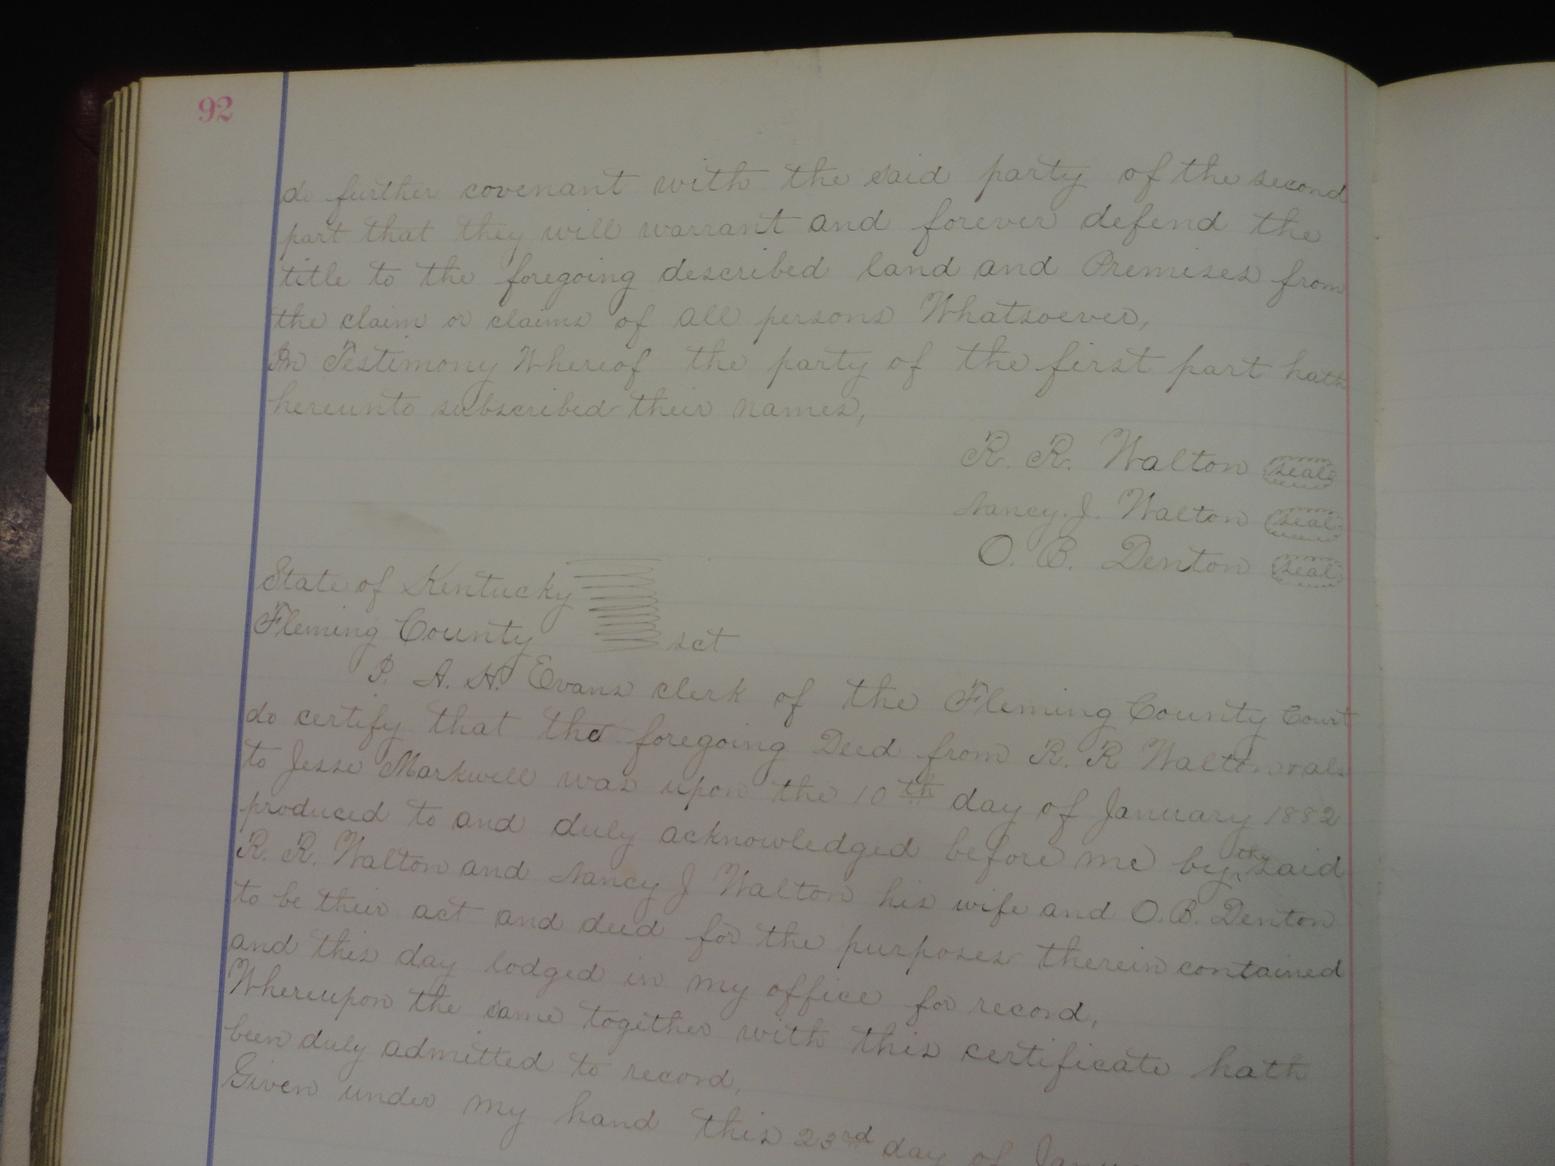 92
do further covenant with the said party of the second
part that they will warrant and forever defend the
title to the foregoing described land and Premises from
the claim or claims of all persons Whatsoever,
In Testimony Whereof the party of the first part hath
hereunto subscribed their names,
R. R. Walton seal
Nancy. J. Walton seal
O. B. Denton seal
State of Kentucky
Fleming County sct
I. A. H. Evans clerk of the Fleming County Court
do certify that the foregoing Deed from R. R Walton
to Jesse Markwell was upon the 10th day of January 1882
produced to and duly acknowledged before me by the said
R. R. Walton and Nancy J Walton his wife and O. B. Denton
to be their act and deed for the purposes therein contained
and this day lodged in my office for record,
Whereupon the same together with this certificate hath
been duly admitted to record,
Given under my hand this 23rd day of